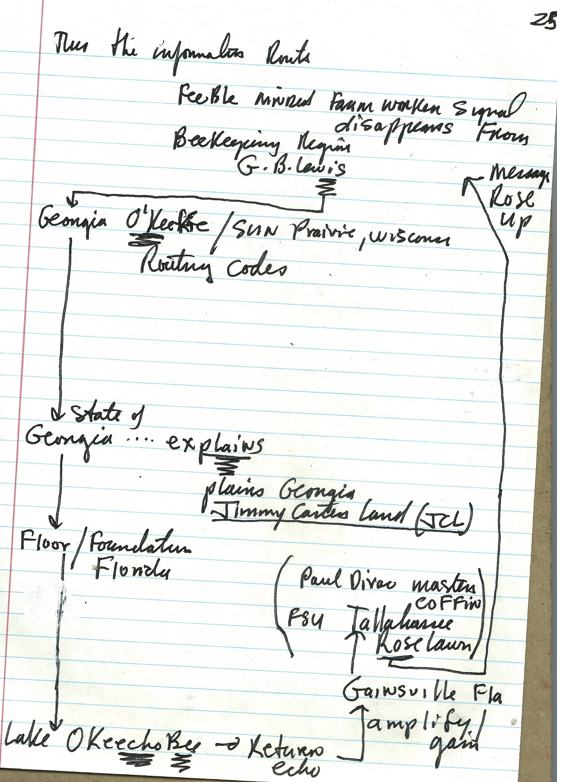 25
Thus the information Route
Feeble minded Farm worker signal
disappears From
Beekeeping Region
G.B. Lewis
Message
Rose
up
Georgia O'Keeffe / SUN Prairie, Wisconsin
Routing Codes
State of
Georgia .... explains
plains Georgia
Jimmy Carter Land (JCL)
Floor / Foundation
Florida
(Paul Dirac masters
coffin
FSU Tallahassee
Roselawn)
Gainsville Fla
amplify /
gain
Lake OKeechoBee → Return
echo